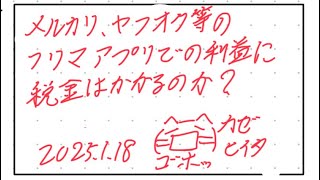 メルカリ、ヤフオク等の
フリマアプリでの利益に
税金はかかるのか?
2025.1.18
カゼ
ヒイタ
ゴホッ